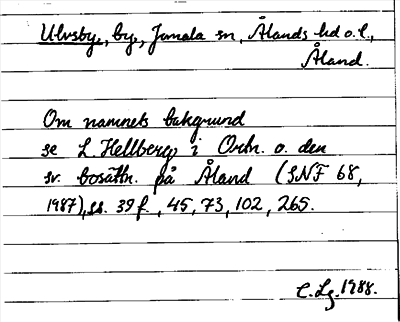 Ulvsby, by, Jomala sn, Ålands hd o. l.,
Åland.
Om namnets bakgrund
se L. Hellberg i Ortn. o. den
sv. bosättn. på Åland (SNF 68,
1987), ss. 39 f., 45, 73, 102, 265.
C. Lg. 1988.